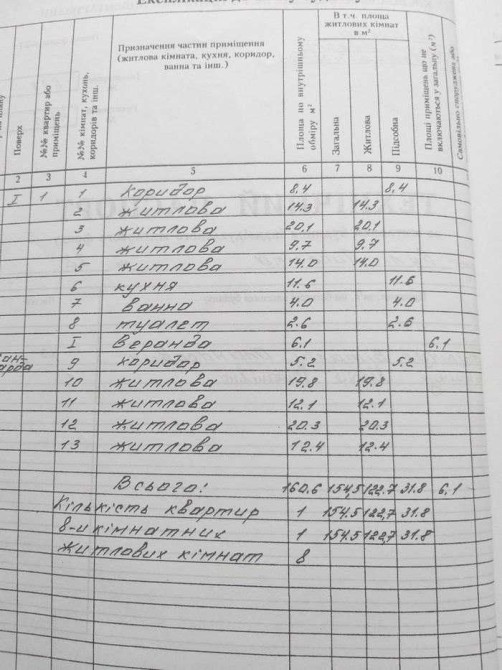 Поверх
№№ квартир або приміщень
№№ кімнат, кухонь, коридорів та інш.
Призначення частин приміщення
(житлова кімната, кухня, коридор,
ванна та інш.)
Площа по внутрішньому обміру м²
В т.ч. площа
житлових кімнат
в м²
Загальна
Житлова
Підсобна
Площі приміщень що не включаються у загальну (м²)
2 3 4 5 6 7 8 9 10
I 1 1 коридор 8,4 8,4
2 житлова 14.3 14.3
3 житлова 20,1 20,1
4 житлова 9.7 9.7
5 житлова 14.0 14.0
6 кухня 11.6 11.6
7 ванна 4.0 4.0
8 туалет 2.6 2.6
I веранда 6.1 6.1
9 коридор 5.2 5.2
10 житлова 19.8 19.8
11 житлова 12.1 12.1
12 житлова 20.3 20.3
13 житлова 12.4 12.4
Всього: 160.6 154,5 122.7 31.8 6.1
Кількість квартир 1 154.5 122,7 31.8
8-и кімнатник 1 154.5 122,7 31.8
житлових кімнат 8